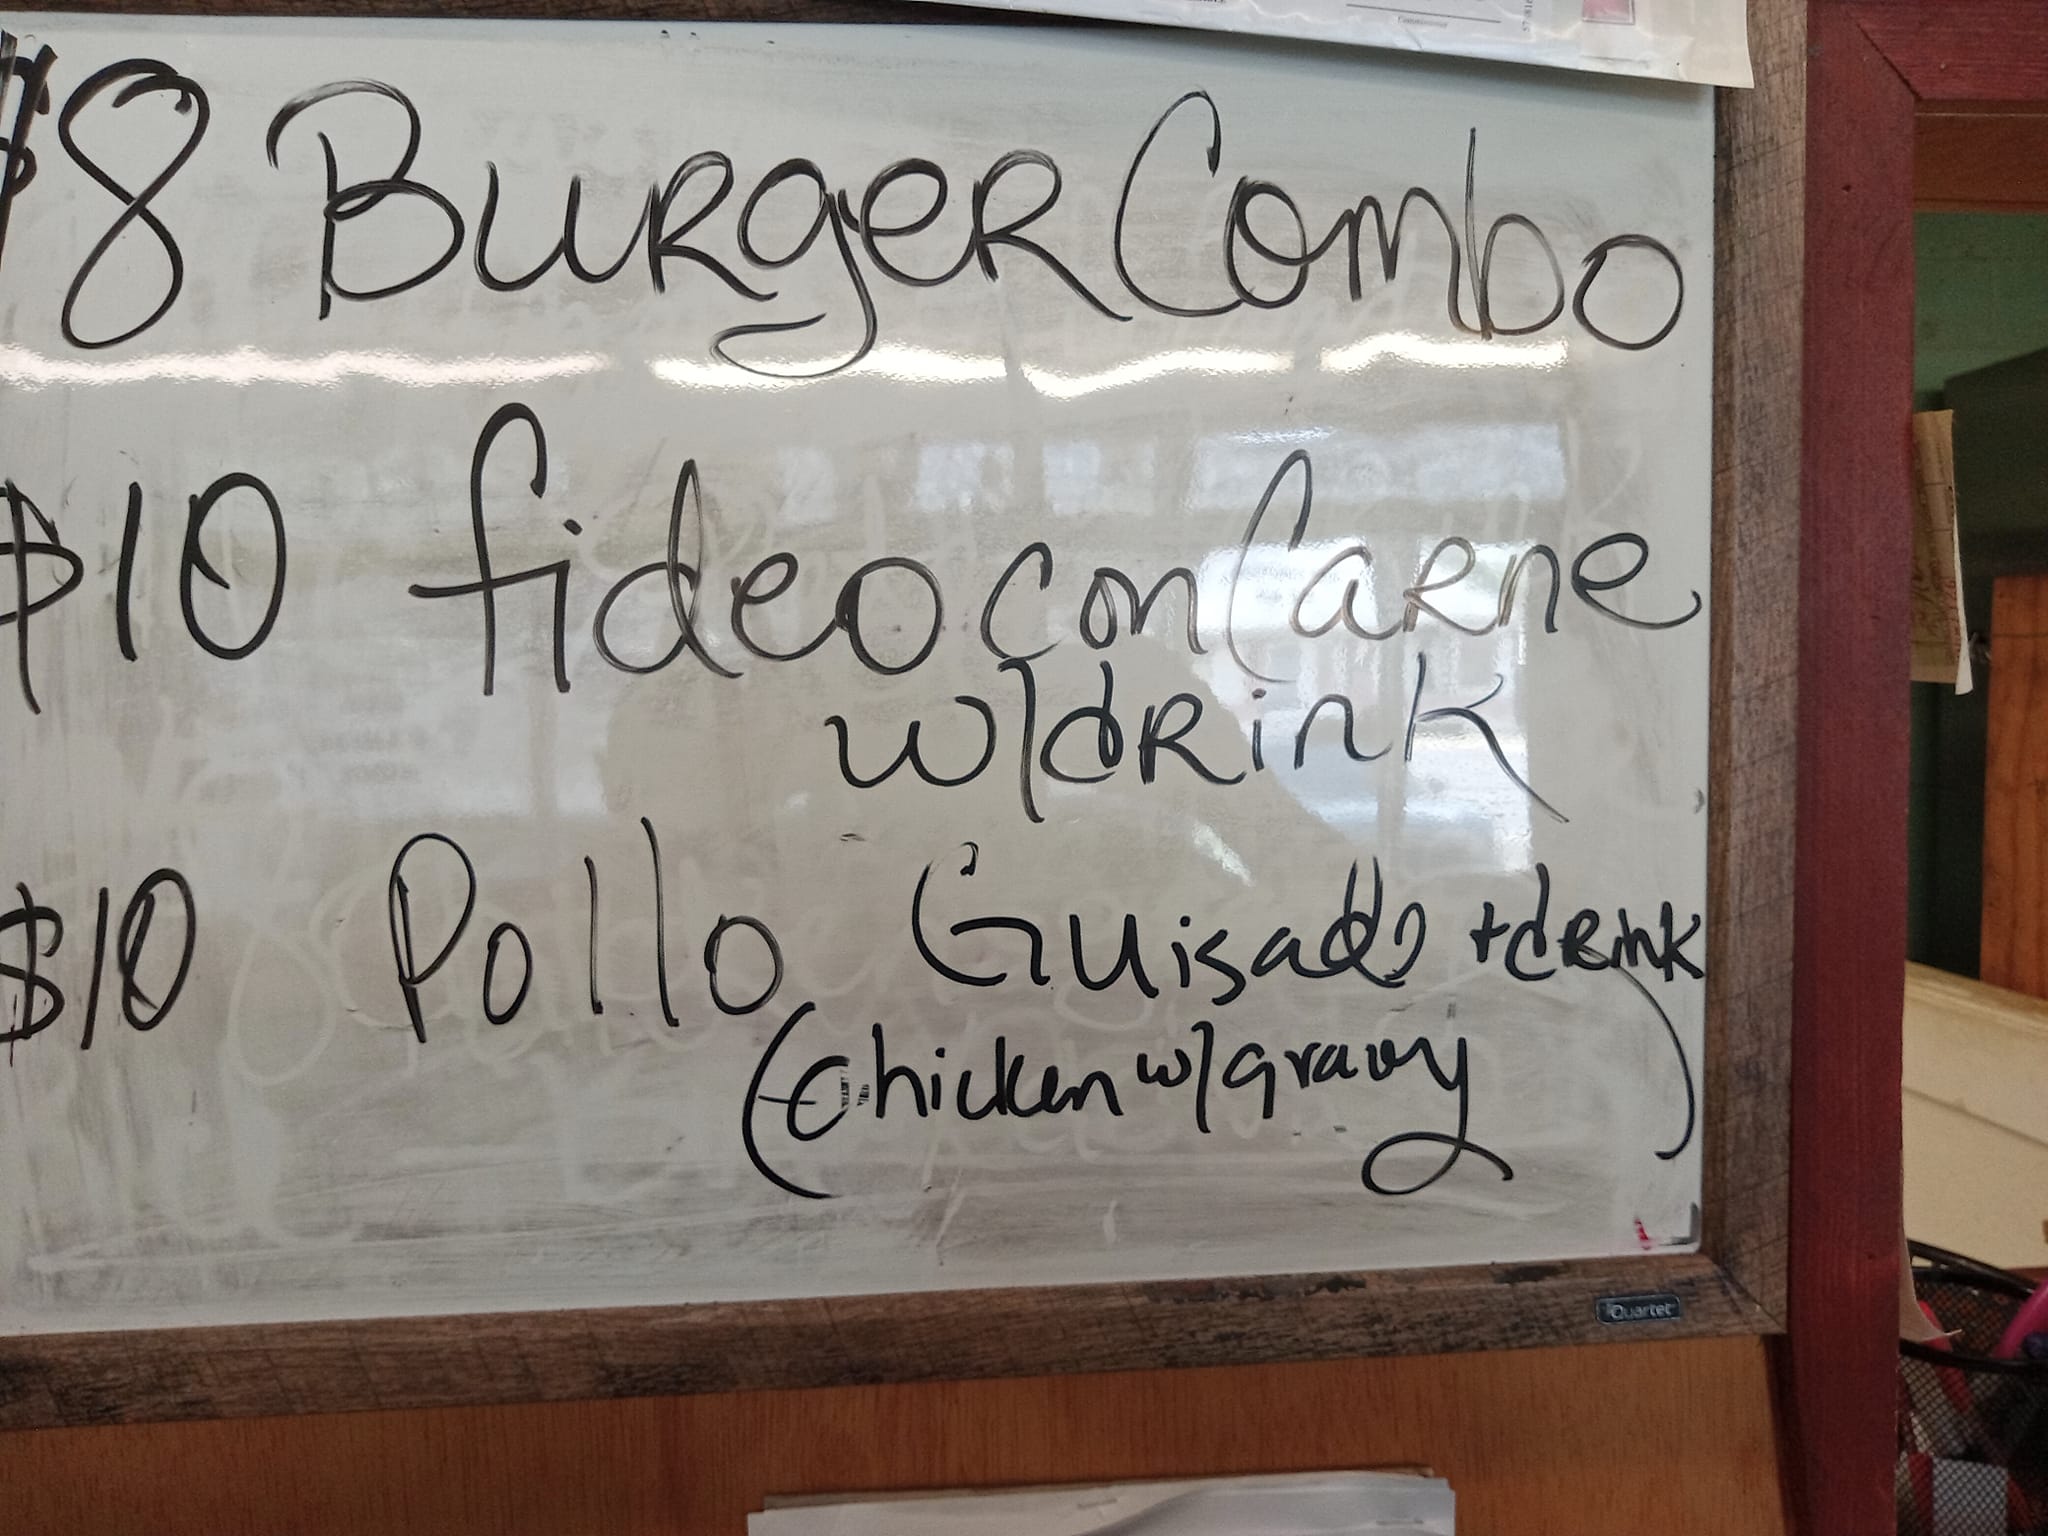 $8 Burger Combo
$10 fideo con Carne
w/drink
$10 Pollo Guisado + drink
(Chicken w/gravy)
Quartet